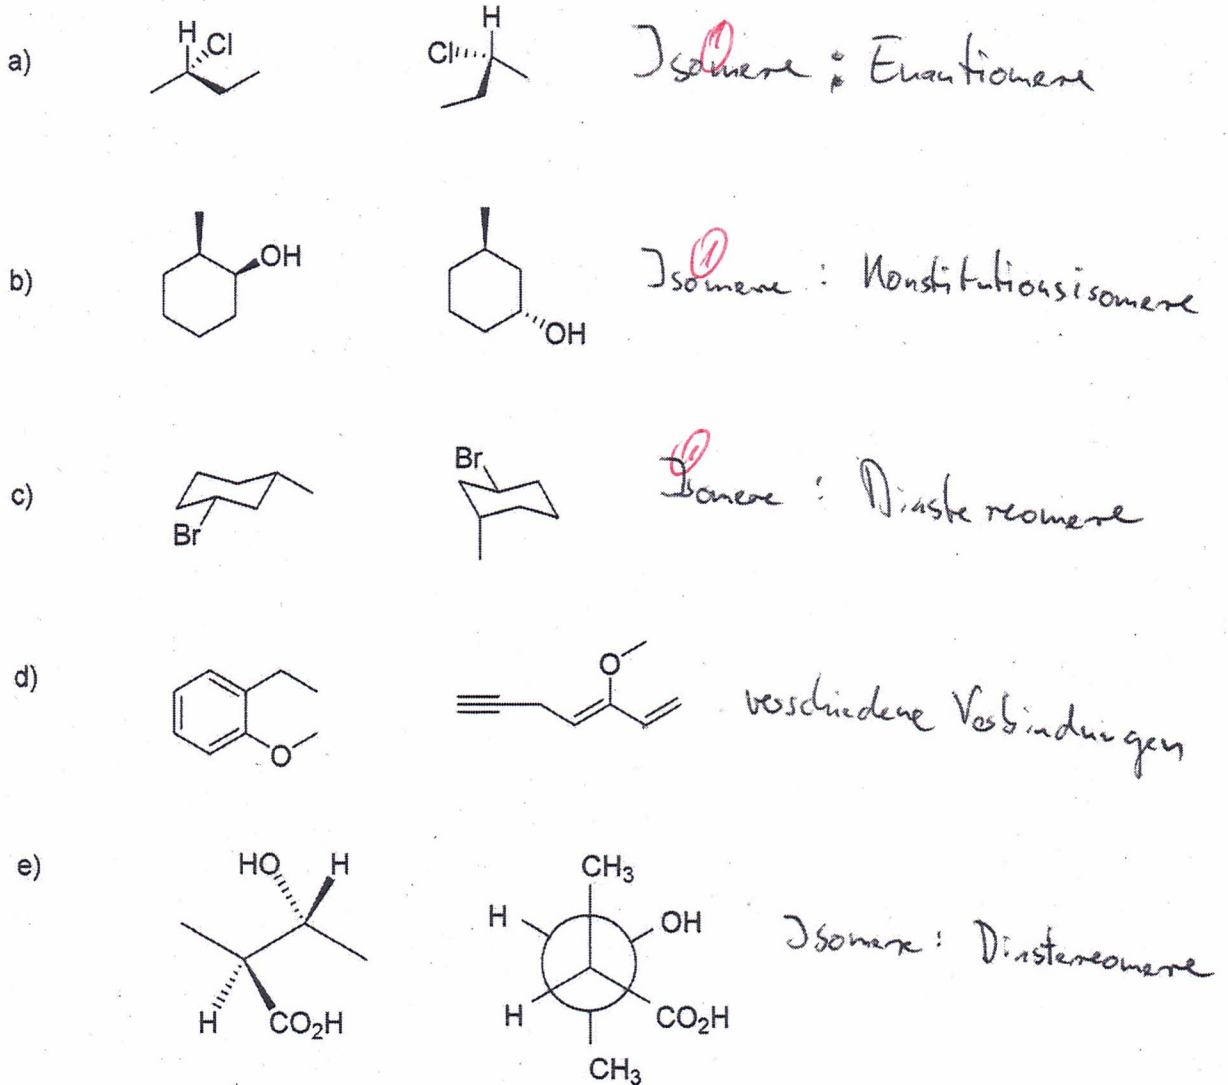 a) H Cl H Cl Isomere : Enantiomere
b) OH OH Isomere : Konstitutionsisomere
c) Br Br Isomere : Diastereomere
d) O O verschiedene Verbindungen
e) HO H H CO₂H CH₃ H OH H CO₂H CH₃ Isomere : Diastereomere